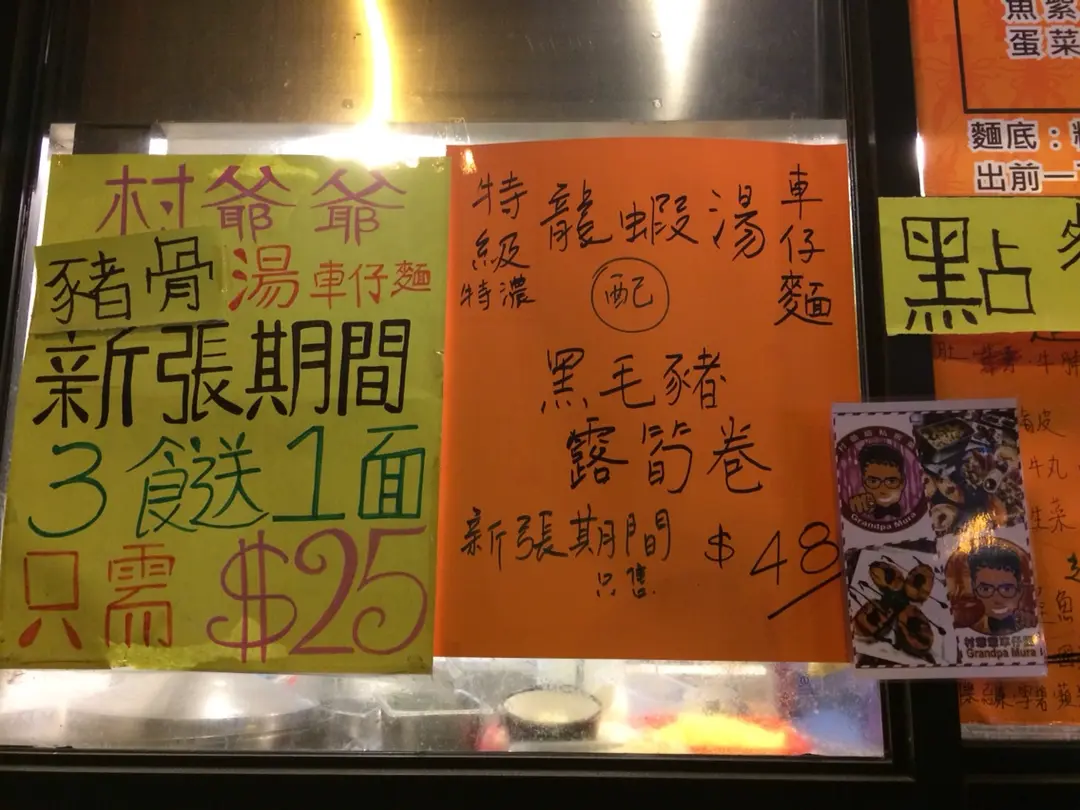 村爺爺
豬骨湯車仔麵
新張期間
3餸送1面
只需$25
特級特濃
龍蝦湯
車仔麵
配
黑毛豬
露筍卷
新張期間
只售
$48
蛋菜
麵底：
出前一
點
Grandpa Mura
Grandpa Mura
牛丸
生菜
魚